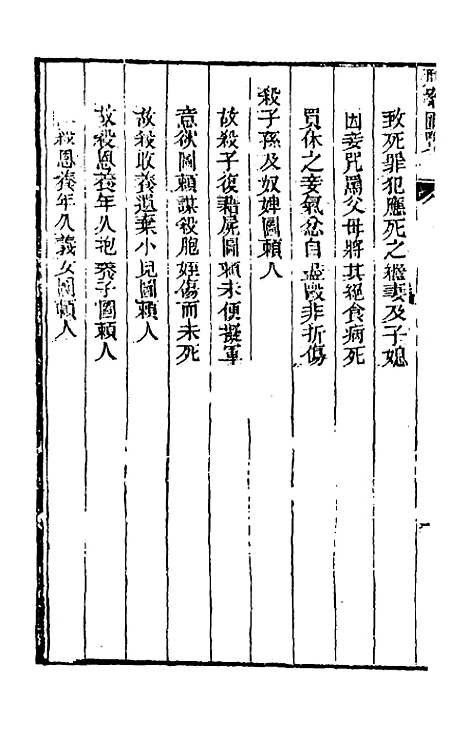 刑案匯覽
致死罪犯應死之繼妻及子媳
因妾咒罵父母將其絕食病死
買休之妾氣忿自盡毆非折傷
殺子孫及奴婢圖賴人
故殺子復藉屍圖賴未便擬軍
意欲圖賴謀殺胞姪傷而未死
故殺收養遺棄小兒圖賴人
故殺恩養年久抱養子圖賴人
殺恩養年久義女圖賴人